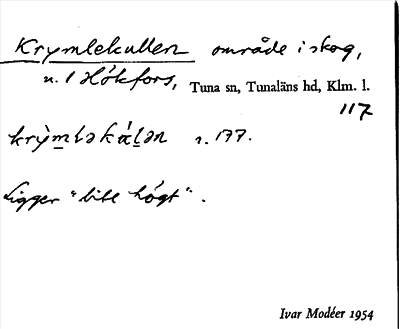 Krymlekullen område i skog,
u. 1 Hökfors, Tuna sn, Tunaläns hd, Klm. l.
117,
Ligger "lite högt".
Ivar Modéer 1954